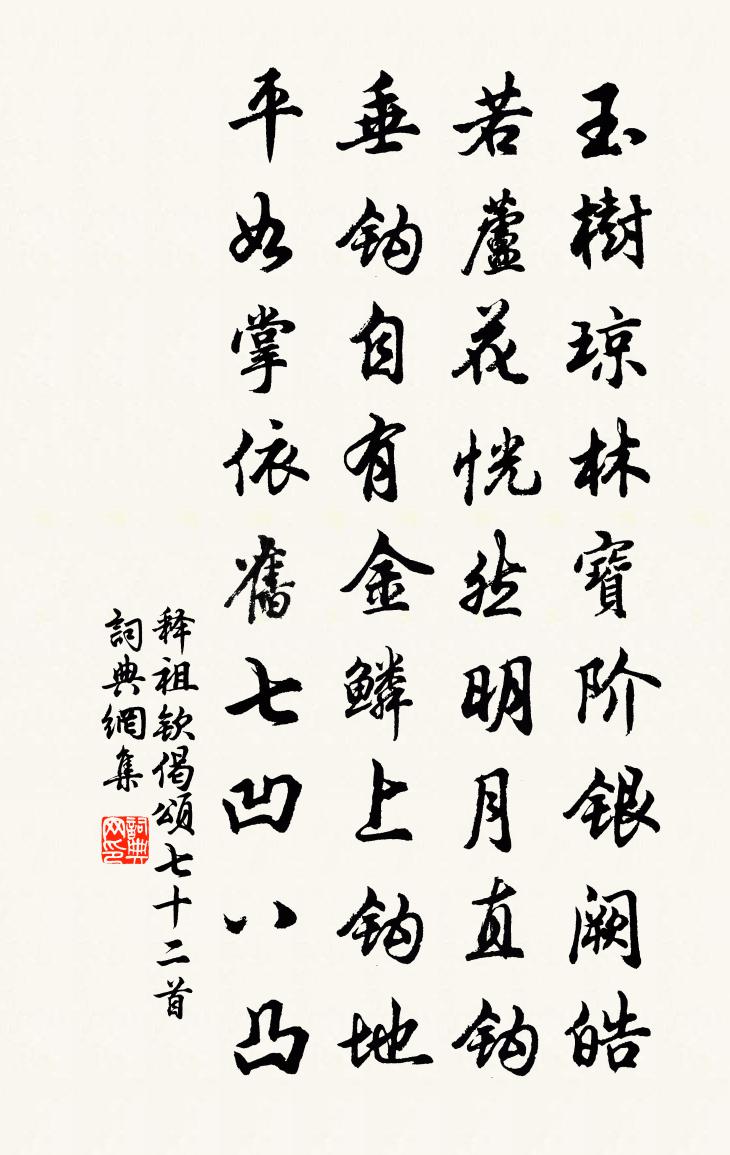 玉樹琼林寶阶銀阙皓
若蘆花恍然明月直鈎
垂鈎自有金鱗上鈎地
平如掌依舊七凹八凸
释祖钦偈頌七十二首
詞典網集
詞典网印